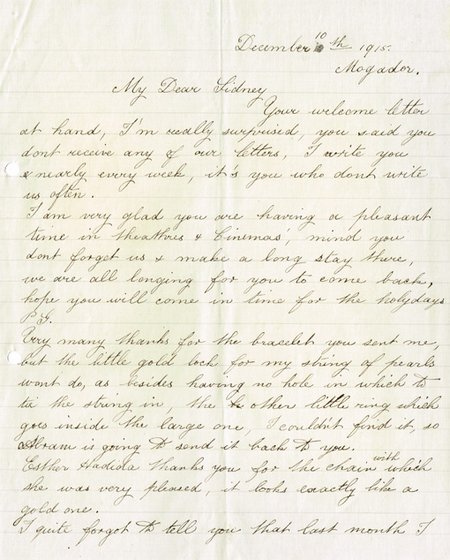 December 10th 1915.
Mogador.
My Dear Sidney
Your welcome letter
at hand, I'm really surprised, you said you
dont receive any of our letters, I write you
& nearly every week, it's you who dont write
us often.
I am very glad you are having a pleasant
time in theathres & Cinemas', mind you
dont forget us & make a long stay there,
we are all longing for you to come back,
hope you will come in time for the holydays
P.G.
Very many thanks for the bracelet you sent me,
but the little gold lock for my string of pearls
wont do, as besides having no hole in which to
tie the string in the other little ring which
goes inside the large one, I couldn't find it, so
Abram is going to send it back to you.
Esther Hadida thanks you for the chain with which
she was very pleased, it looks exactly like a
gold one.
I quite forgot to tell you that last month I